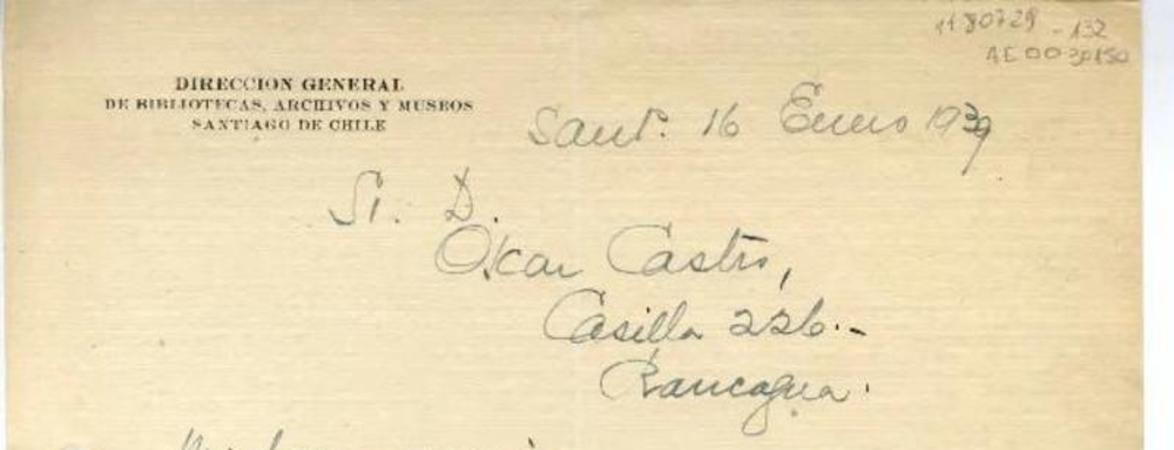 1180729 - 132
AE0030150
DIRECCION GENERAL
DE BIBLIOTECAS, ARCHIVOS Y MUSEOS
SANTIAGO DE CHILE
Santo. 16 Enero 1939
Sr. D.
Oscar Castro,
Casilla 226.-
Rancagua.